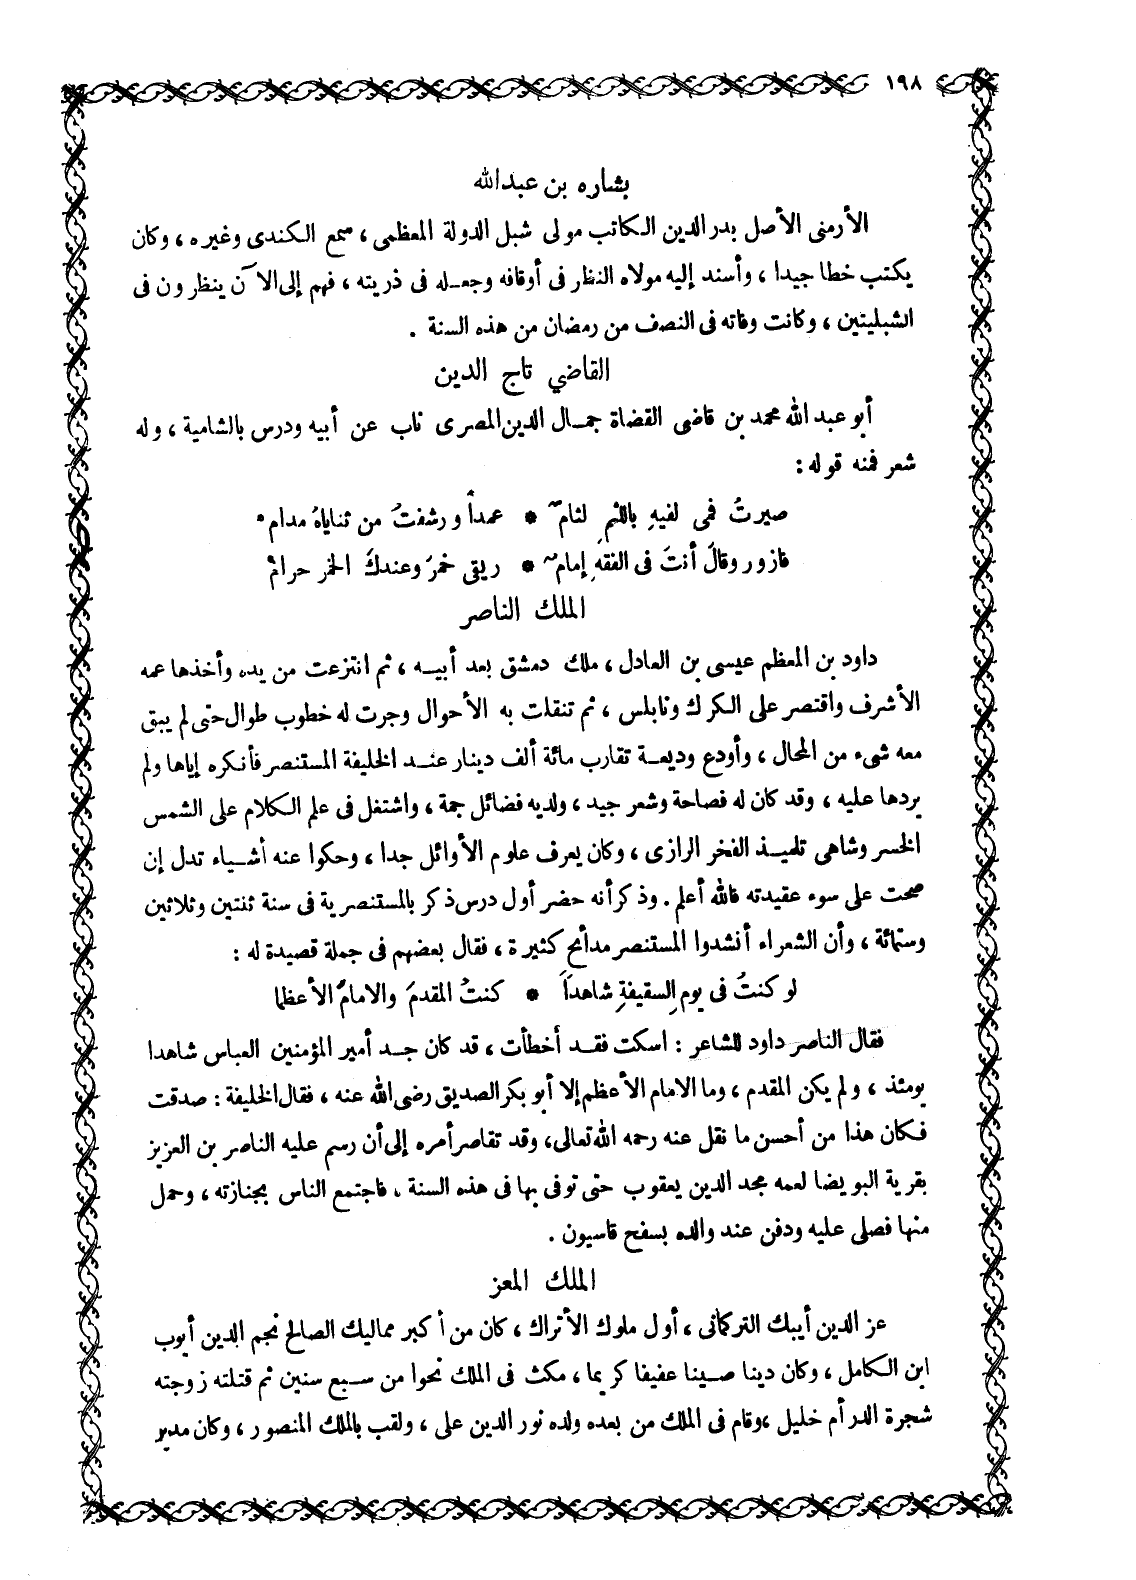 ١٩٨
بشاره بن عبدالله
الأرمنى الأصل بدر الدين الكاتب مولى شبل الدولة المعظمى، سمع الكندى وغيره، وكان
يكتب خطا جيدا، وأسند إليه مولاه النظر فى أوقافه وجعله فى ذريته، فهم إلى الآن ينظرون فى
الشبليتين، وكانت وفاته فى النصف من رمضان من هذه السنة.
القاضي تاج الدين
أبو عبد الله محمد بن قاضى القضاة جمال الدين المصرى ناب عن أبيه ودرس بالشامية، وله
شعر فمنه قوله:
صيرتُ فمى لفيهِ باللثمِ لثام * عمداً ورشفتُ من ثناياهُ مدام
فازور وقالَ أنتَ فى الفقهِ إمام * ريقى خمرٌ وعندكَ الخمر حرام
الملك الناصر
داود بن المعظم عيسى بن العادل، ملك دمشق بعد أبيه، ثم انتزعت من يده وأخذها عمه
الأشرف واقتصر على الكرك ونابلس، ثم تنقلت به الأحوال وجرت له خطوب طوال حتى لم يبق
معه شىء من المحال، وأودع وديعة تقارب مائة ألف دينار عند الخليفة المستنصر فأنكره إياها ولم
يردها عليه، وقد كان له فصاحة وشعر جيد، ولديه فضائل جمة، واشتغل فى علم الكلام على الشمس
الخسر وشاهى تلميذ الفخر الرازى، وكان يعرف علوم الأوائل جدا، وحكوا عنه أشياء تدل إن
صحت على سوء عقيدته فالله أعلم. وذكر أنه حضر أول درس ذكر بالمستنصرية فى سنة ثنتين وثلاثين
وستمائة، وأن الشعراء أنشدوا المستنصر مدائح كثيرة، فقال بعضهم فى جملة قصيدة له:
لو كنتُ فى يومِ السقيفةِ شاهداً * كنتُ المقدمَ والامامَ الأعظما
فقال الناصر داود للشاعر: اسكت فقد أخطأت، قد كان جد أمير المؤمنين العباس شاهدا
يومئذ، ولم يكن المقدم، وما الامام الأعظم إلا أبو بكر الصديق رضى الله عنه، فقال الخليفة: صدقت
فكان هذا من أحسن ما نقل عنه رحمه الله تعالى، وقد تقاصر أمره إلى أن رسم عليه الناصر بن العزيز
بقرية البويضا لعمه مجد الدين يعقوب حتى توفى بها فى هذه السنة، فاجتمع الناس بجنازته، وحمل
منها فصلى عليه ودفن عند والده بسفح قاسيون.
الملك المعز
عز الدين أيبك التركمانى، أول ملوك الأتراك، كان من أكبر مماليك الصالح نجم الدين أيوب
ابن الكامل، وكان دينا صينا عفيفا كريما، مكث فى الملك نحوا من سبع سنين ثم قتلته زوجته
شجرة الدر أم خليل، وقام فى الملك من بعده ولده نور الدين على، ولقب بالملك المنصور، وكان مدير